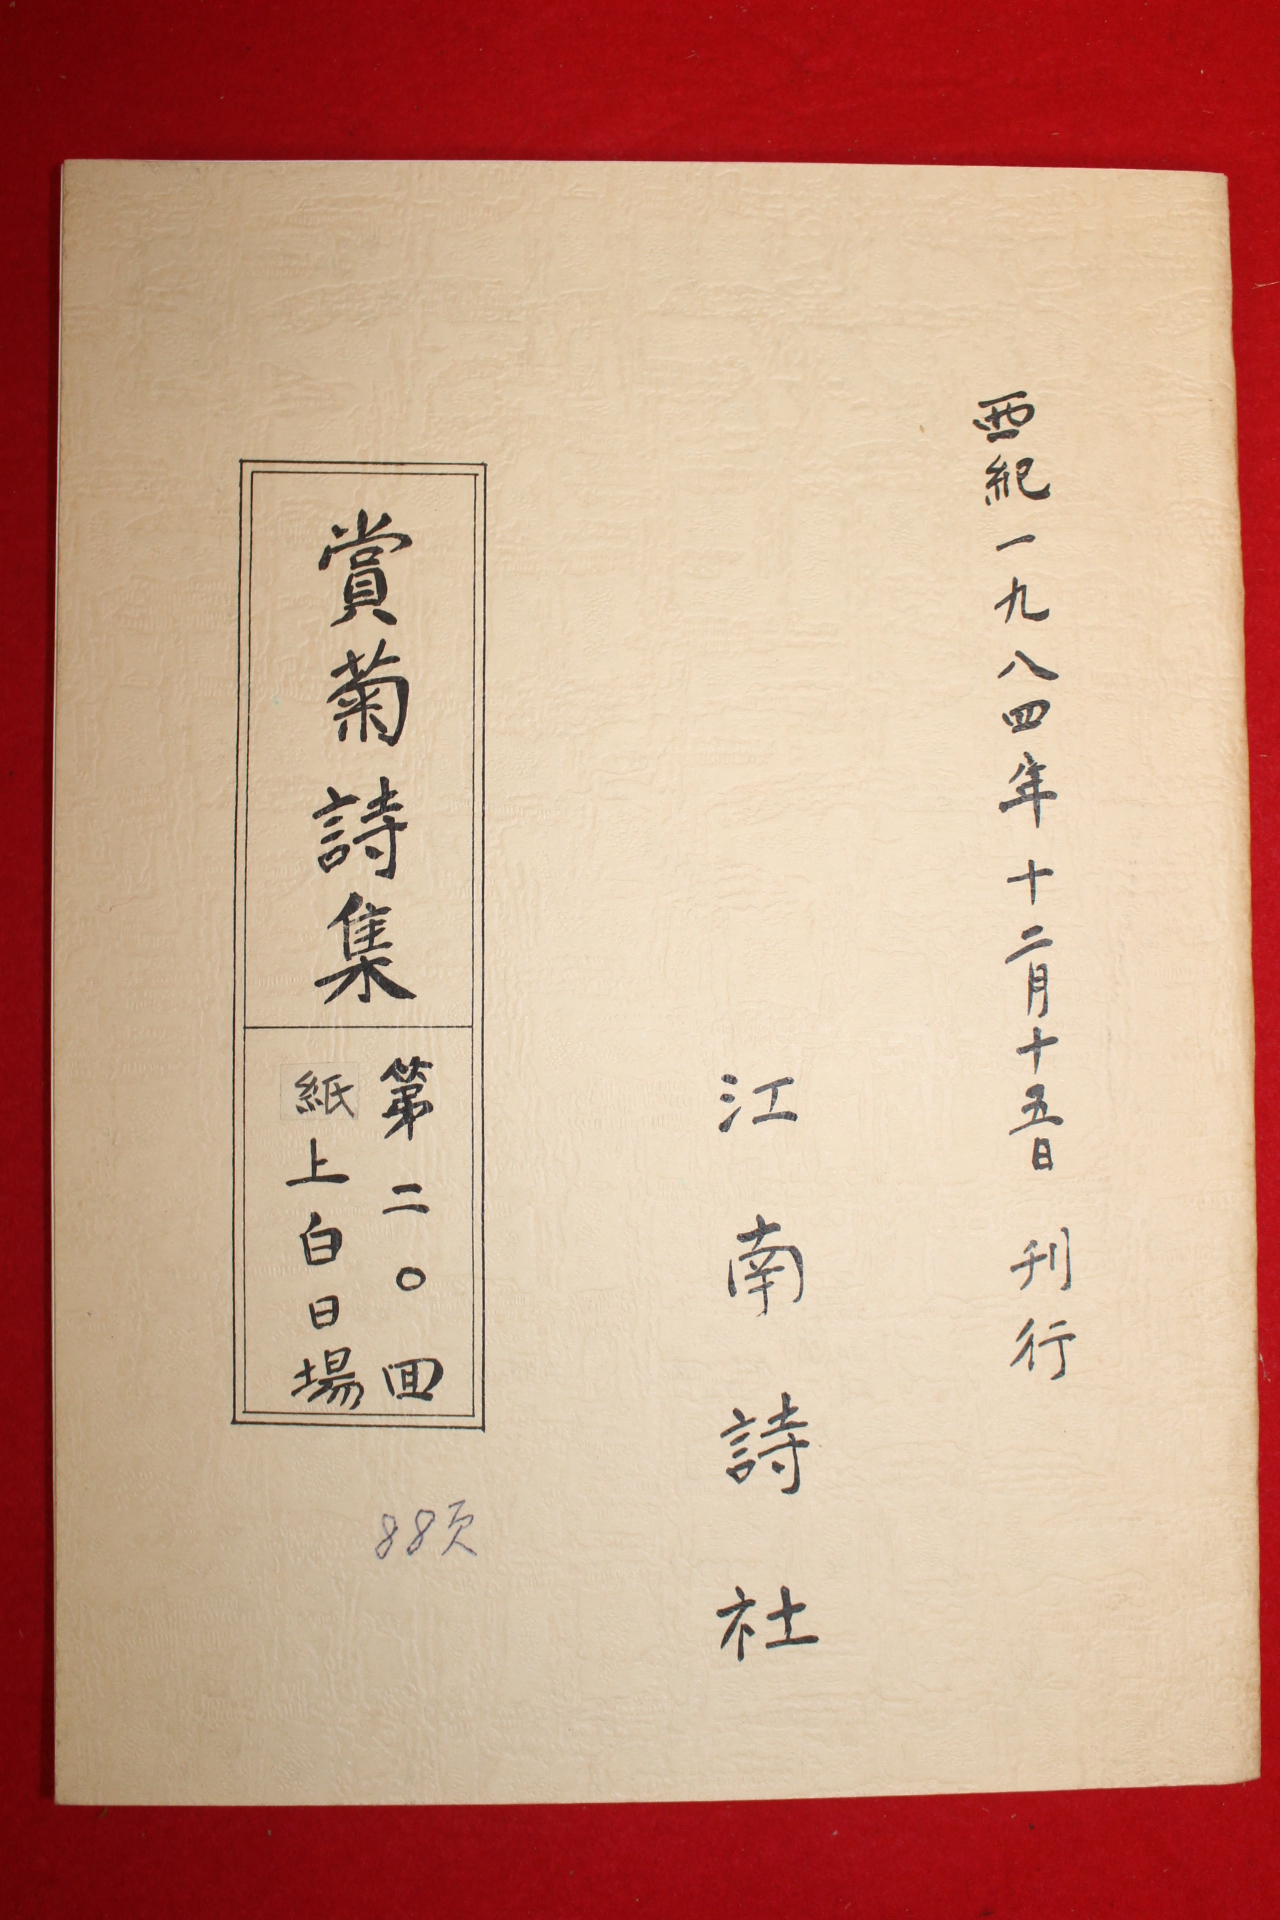 西紀一九八四年十二月十五日 刊行
江南詩社
賞菊詩集
第二〇回
紙上白日場
88页